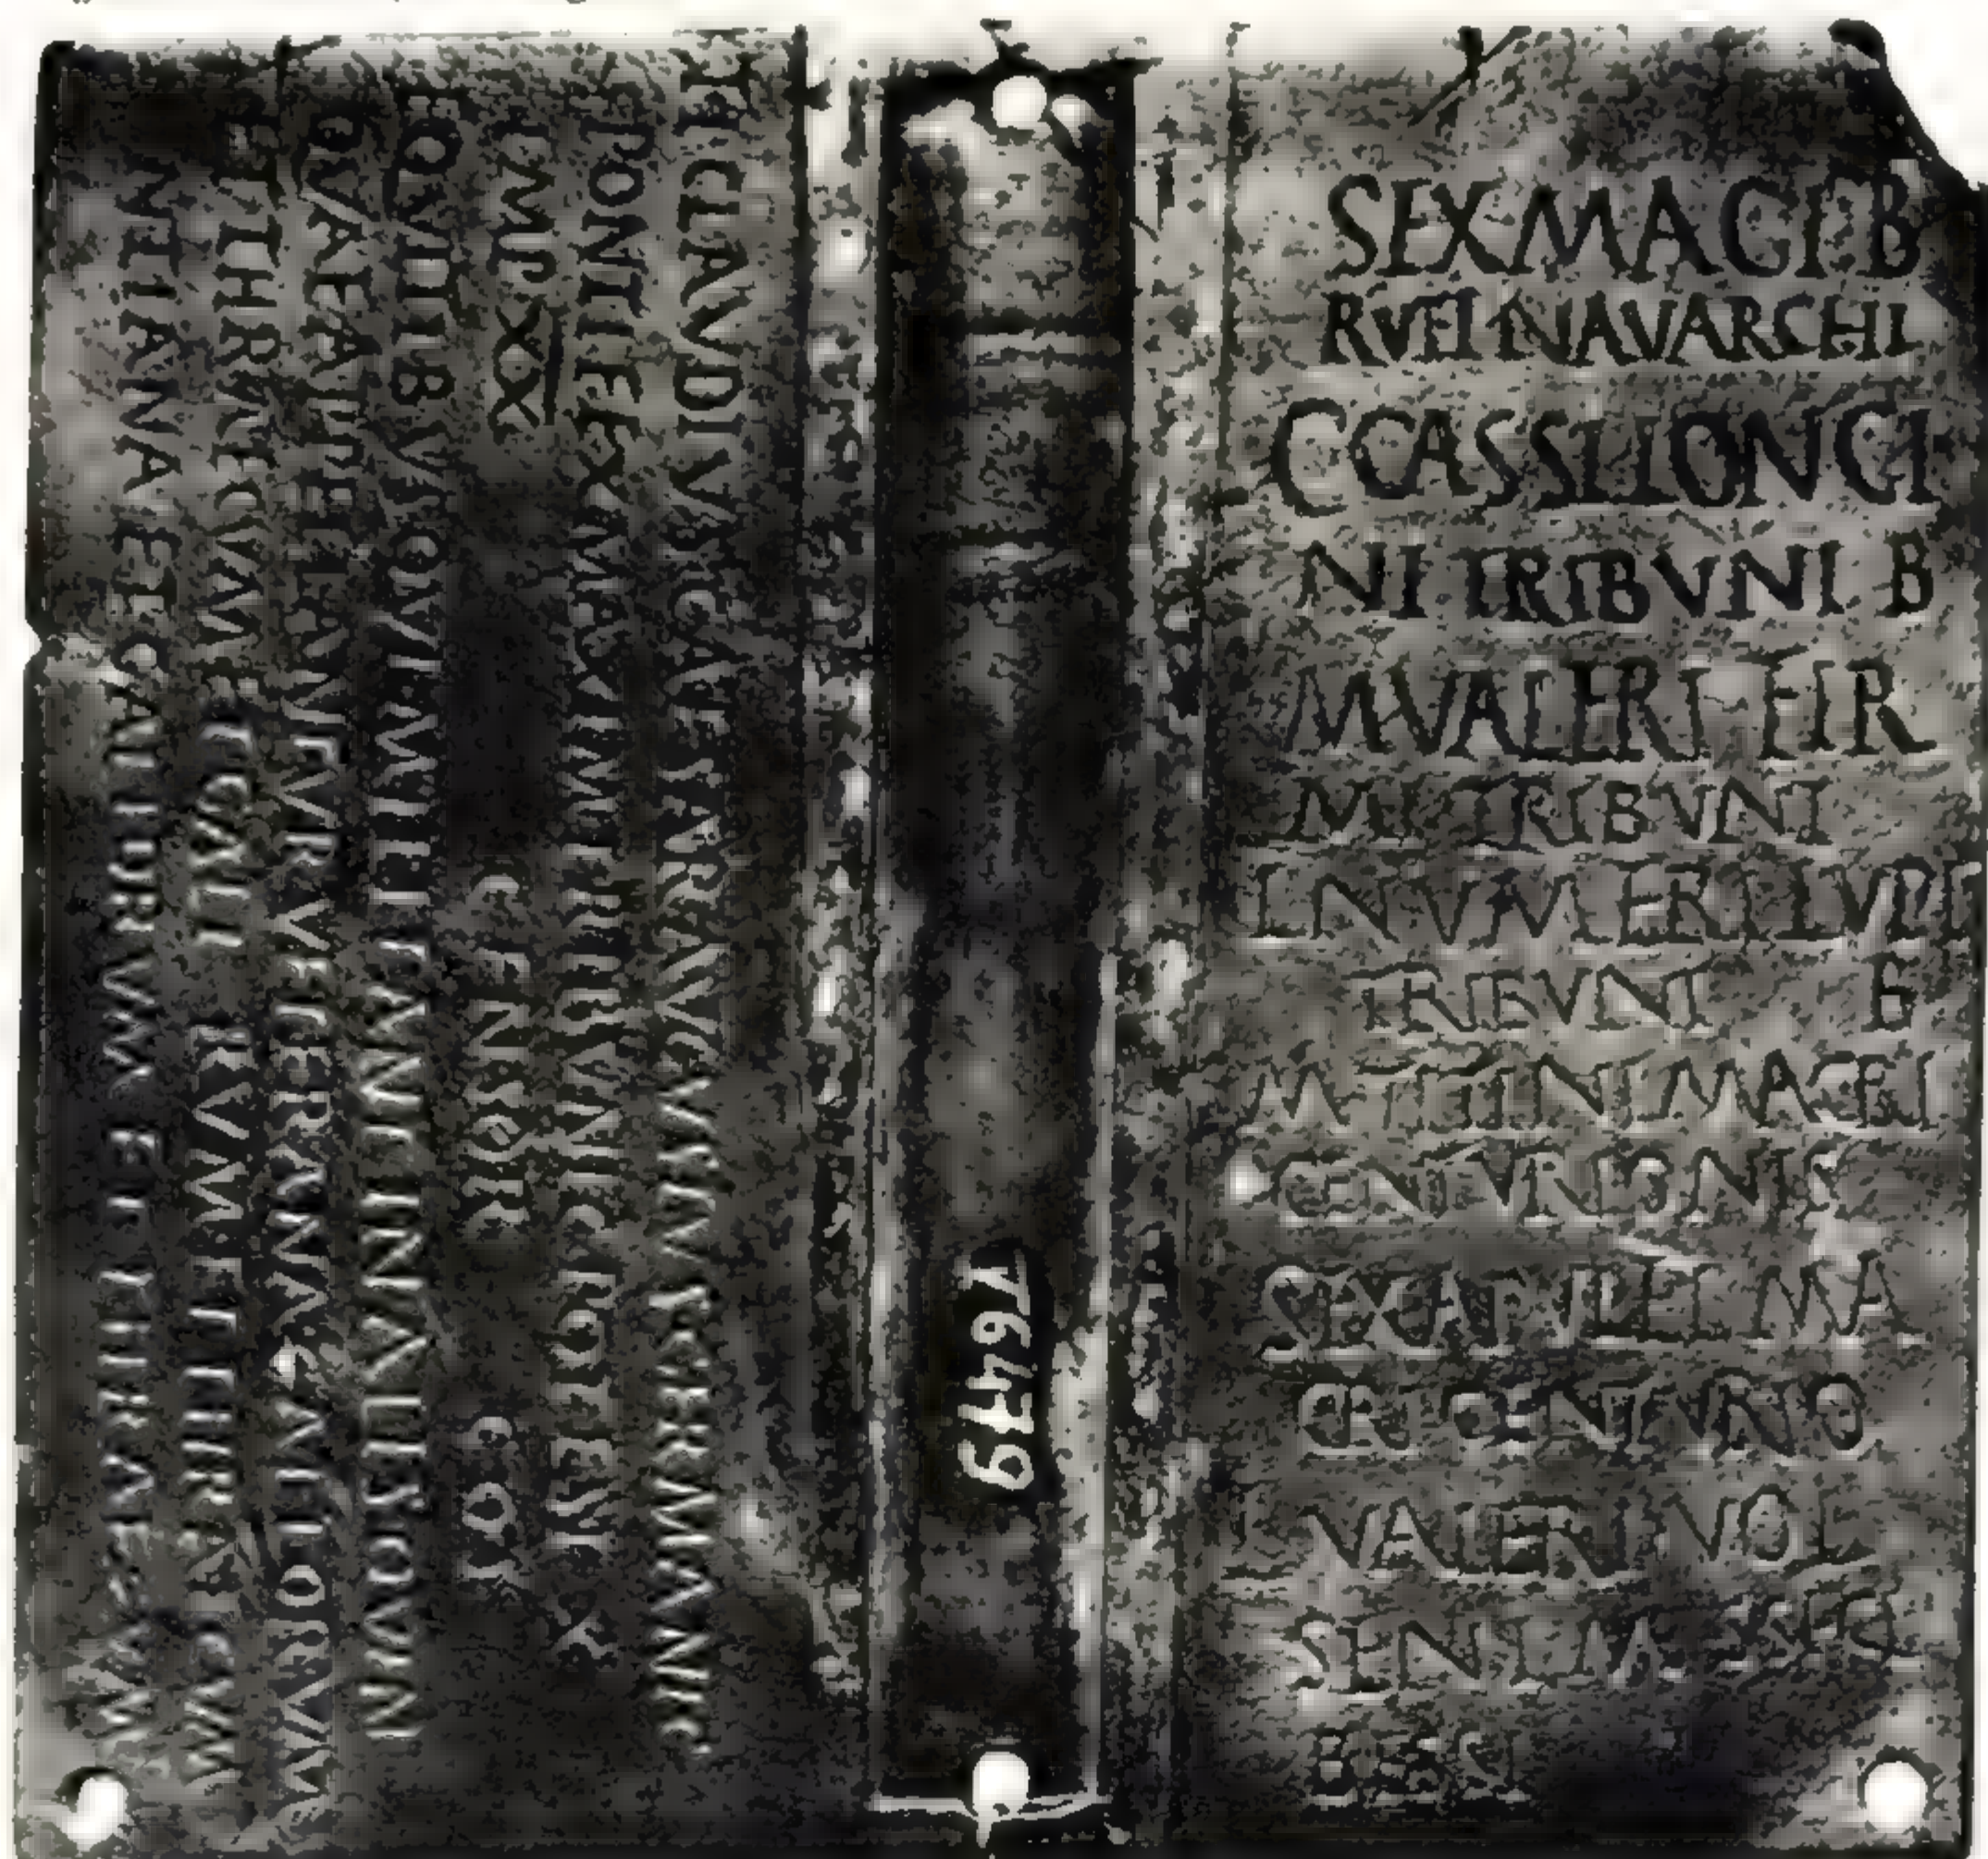 TI CLAVDIVS CAESAR AVGVSTVS GERMANIC
PONTIFEX MAXIM TRIBVNIC POTEST X
IMP CENSOR COS
EQVITIBVS QVI MILITANT IN ALIS QVIN
QVAE APPELLANTVR VETERANA GALLORVM
ET THRAECVM ET GALLORVM ET THRAECVM
NTIANA ET GALLORVM ET THRAECVM
76479
SEX MAGI B
RVFI NAVARCHI
C CASSI LONGI
NI TRIBVNI B
M VALERI FIR
MI TRIBVNI
L NVMERI LVPI
TRIBVNI B
M TITINI
CENTVRIONIS
SEX APVLEI MA
CRI CENTVRIO
L VALERI VOL
SENI
BESSI